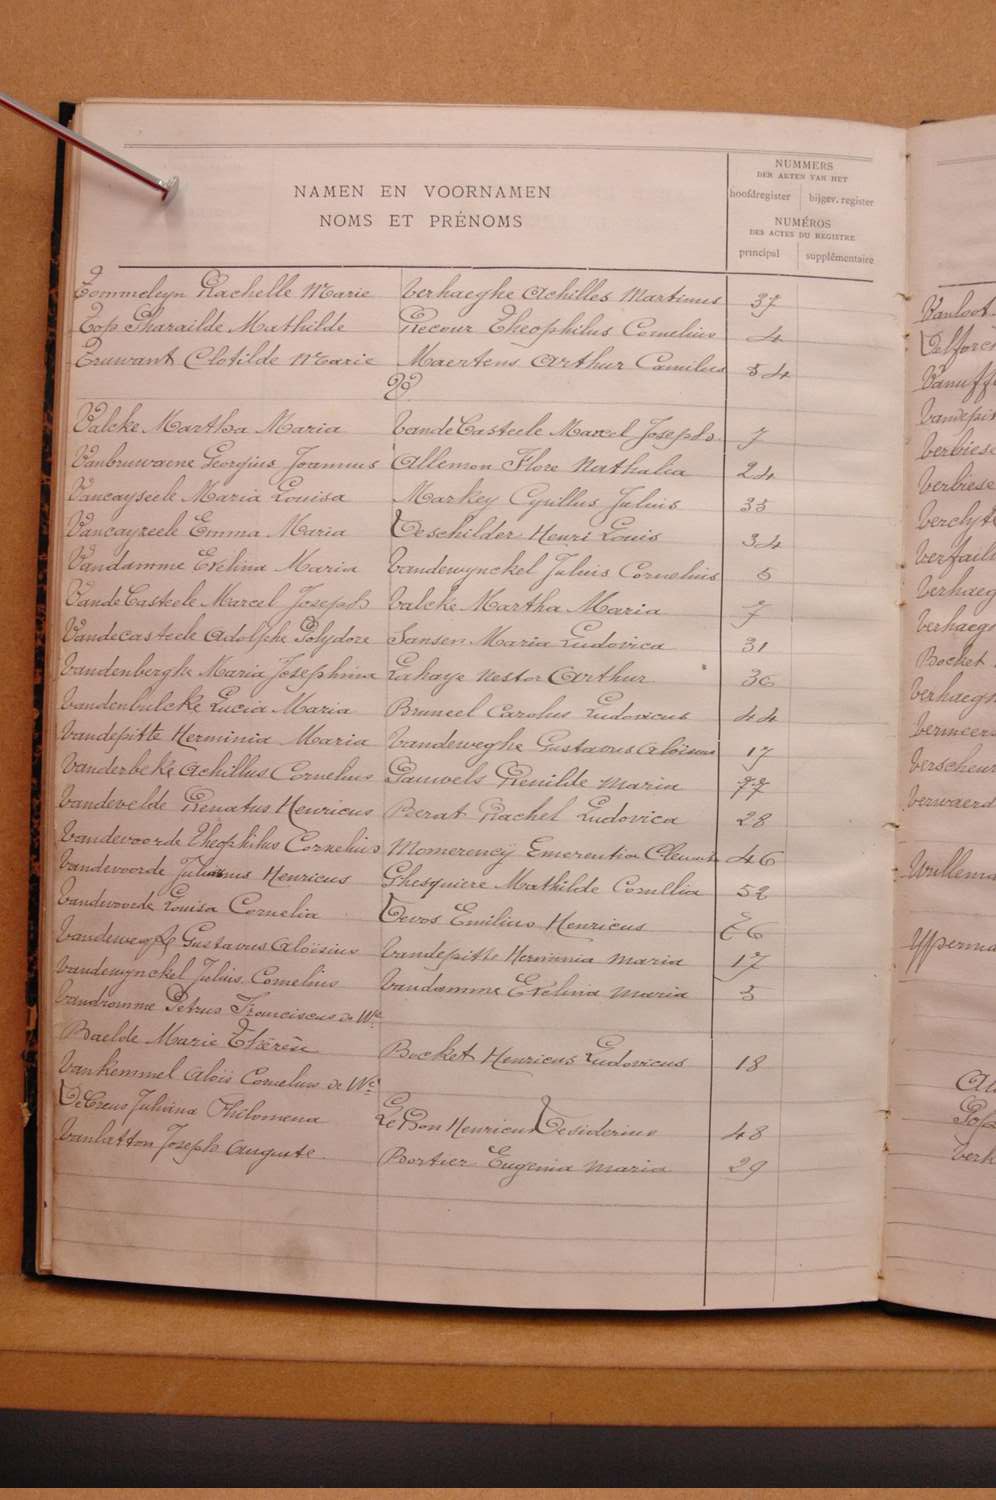 NAMEN EN VOORNAMEN
NOMS ET PRÉNOMS
NUMMERS
DER AKTEN VAN HET
hoofdregister bijgev. register
NUMÉROS
DES ACTES DU REGISTRE
principal supplémentaire
Tommeleyn Rachelle Marie Verhaeghe Achilles Martinus 37
Top Pharaïlde Mathilde Recour Theophilus Cornelius 4
Truwant Clotilde Marie Maertens Arthur Camilus 54
V.
Valcke Martha Maria Vande Casteele Marcel Joseph 7
Vanbruwaene Georgius Joannus Allemon Flore Nathalia 24
Vancayseele Maria Louisa Markey Cyrillus Julius 35
Vancayzeele Emma Maria Deschilder Henri Louis 34
Vandamme Evelina Maria Vandewynckel Julius Cornelius 5
Vande Casteele Marcel Joseph Valcke Martha Maria 7
Vandecasteele Adolphe Polydore Jansen Maria Ludovica 31
Vandenberghe Maria Josephina Lahaye Nestor Arthur 36
Vandenbulcke Lucia Maria Bruneel Carolus Ludovicus 44
Vandepitte Herminia Maria Vandeweghe Gustavus Aloïsius 17
Vanderbeke Achillus Cornelius Pauwels Renilde Maria 77
Vandevelde Renatus Henricus Berat Rachel Ludovica 28
Vandevoorde Theophilus Cornelius Momerency Emerentia 46
Vandevoorde Julianus Henricus Ghesquiere Mathilde Cornelia 52
Vandevoorde Louisa Cornelia Devos Emilius Henricus 76
Vandeweghe Gustavus Aloïsius Vandepitte Herminia Maria 17
Vandewynckel Julius Cornelius Vandamme Evelina Maria 5
Vandromme Petrus Franciscus de We
Baelde Marie Thérèse Bocket Henricus Ludovicus 18
Vankemmel Aloïs Cornelius de We
De Creus Juliana Philomena Le Bon Henricus Desiderius 48
Vanlatton Joseph Auguste Bortier Eugenia Maria 29